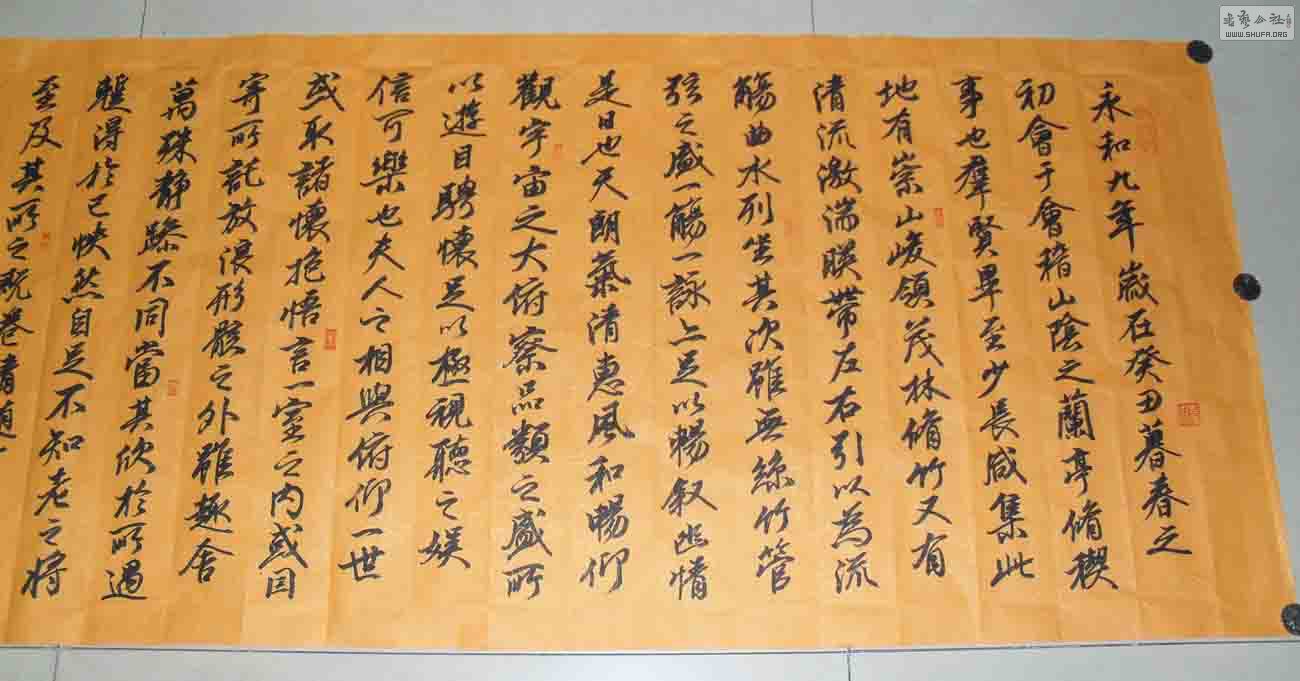 永和九年歲在癸丑暮春之
初會于會稽山陰之蘭亭脩稧
事也羣賢畢至少長咸集此
地有崇山峻領茂林脩竹又有
清流激湍暎帶左右引以為流
觴曲水列坐其次雖無絲竹管
弦之盛一觴一詠亦足以暢叙幽情
是日也天朗氣清惠風和暢仰
觀宇宙之大俯察品類之盛所
以遊目騁懷足以極視聽之娛
信可樂也夫人之相與俯仰一世
或取諸懷抱悟言一室之内或因
寄所託放浪形骸之外雖趣舍
萬殊静躁不同當其欣於所遇
蹔得於己怏然自足不知老之將
至及其所之既惓情隨
書藝公社
WWW.SHUFA.ORG